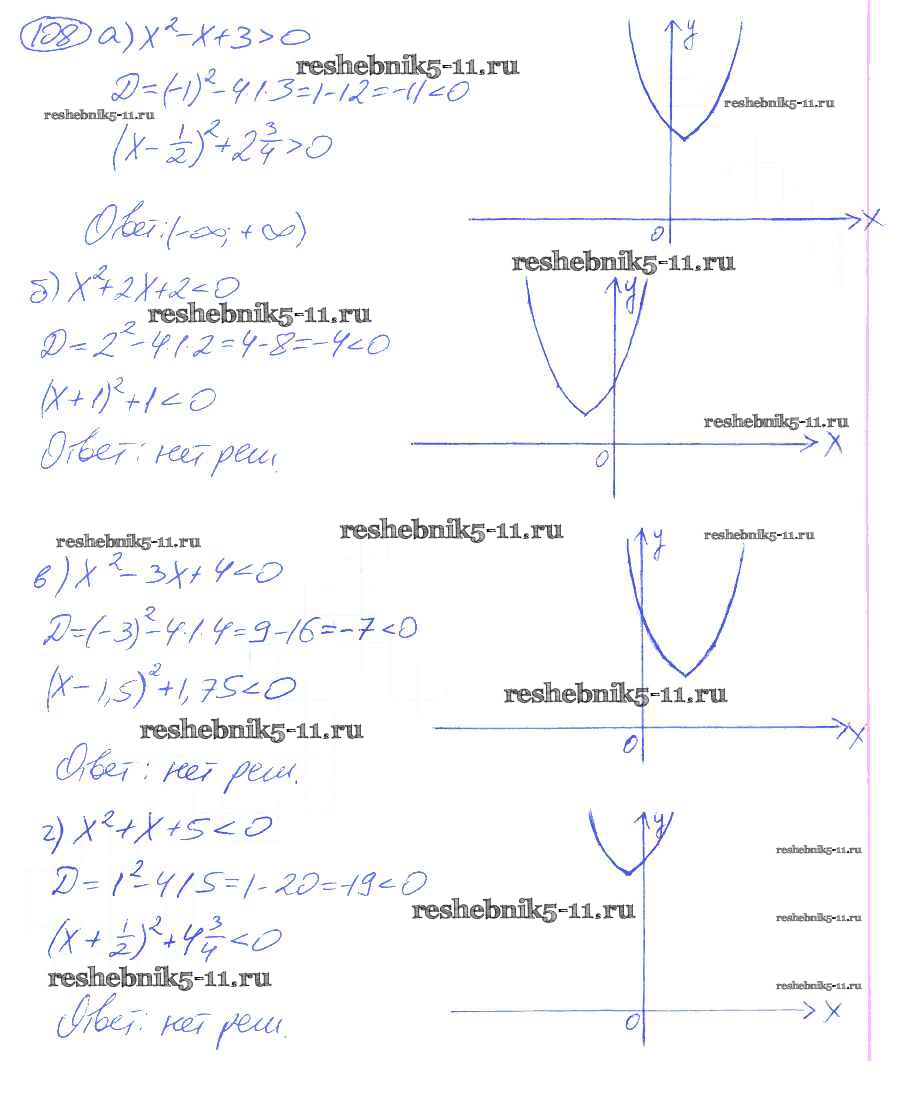 108 а) x² - x + 3 > 0
reshebnik5-11.ru
D = (-1)² - 4·1·3 = 1 - 12 = -11 < 0
reshebnik5-11.ru
reshebnik5-11.ru
(x - 1/2)² + 2 3/4 > 0
Ответ: (-∞; +∞)
y
x
0
reshebnik5-11.ru
б) x² + 2x + 2 < 0
reshebnik5-11.ru
D = 2² - 4·1·2 = 4 - 8 = -4 < 0
(x + 1)² + 1 < 0
Ответ: нет реш.
y
reshebnik5-11.ru
x
0
reshebnik5-11.ru
reshebnik5-11.ru
reshebnik5-11.ru
в) x² - 3x + 4 < 0
D = (-3)² - 4·1·4 = 9 - 16 = -7 < 0
(x - 1,5)² + 1,75 < 0
reshebnik5-11.ru
reshebnik5-11.ru
Ответ: нет реш.
y
x
0
г) x² + x + 5 < 0
D = 1² - 4·1·5 = 1 - 20 = -19 < 0
(x + 1/2)² + 4 3/4 < 0
reshebnik5-11.ru
Ответ: нет реш.
y
reshebnik5-11.ru
reshebnik5-11.ru
reshebnik5-11.ru
reshebnik5-11.ru
x
0